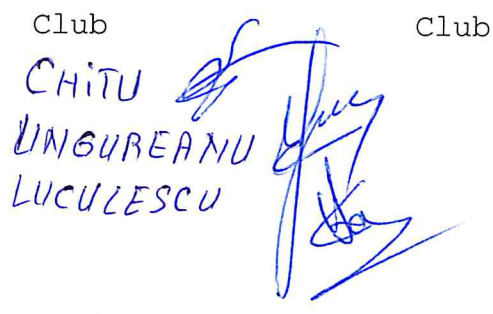 Club Club
CHiTU
UNGUREANU
LUCULESCU